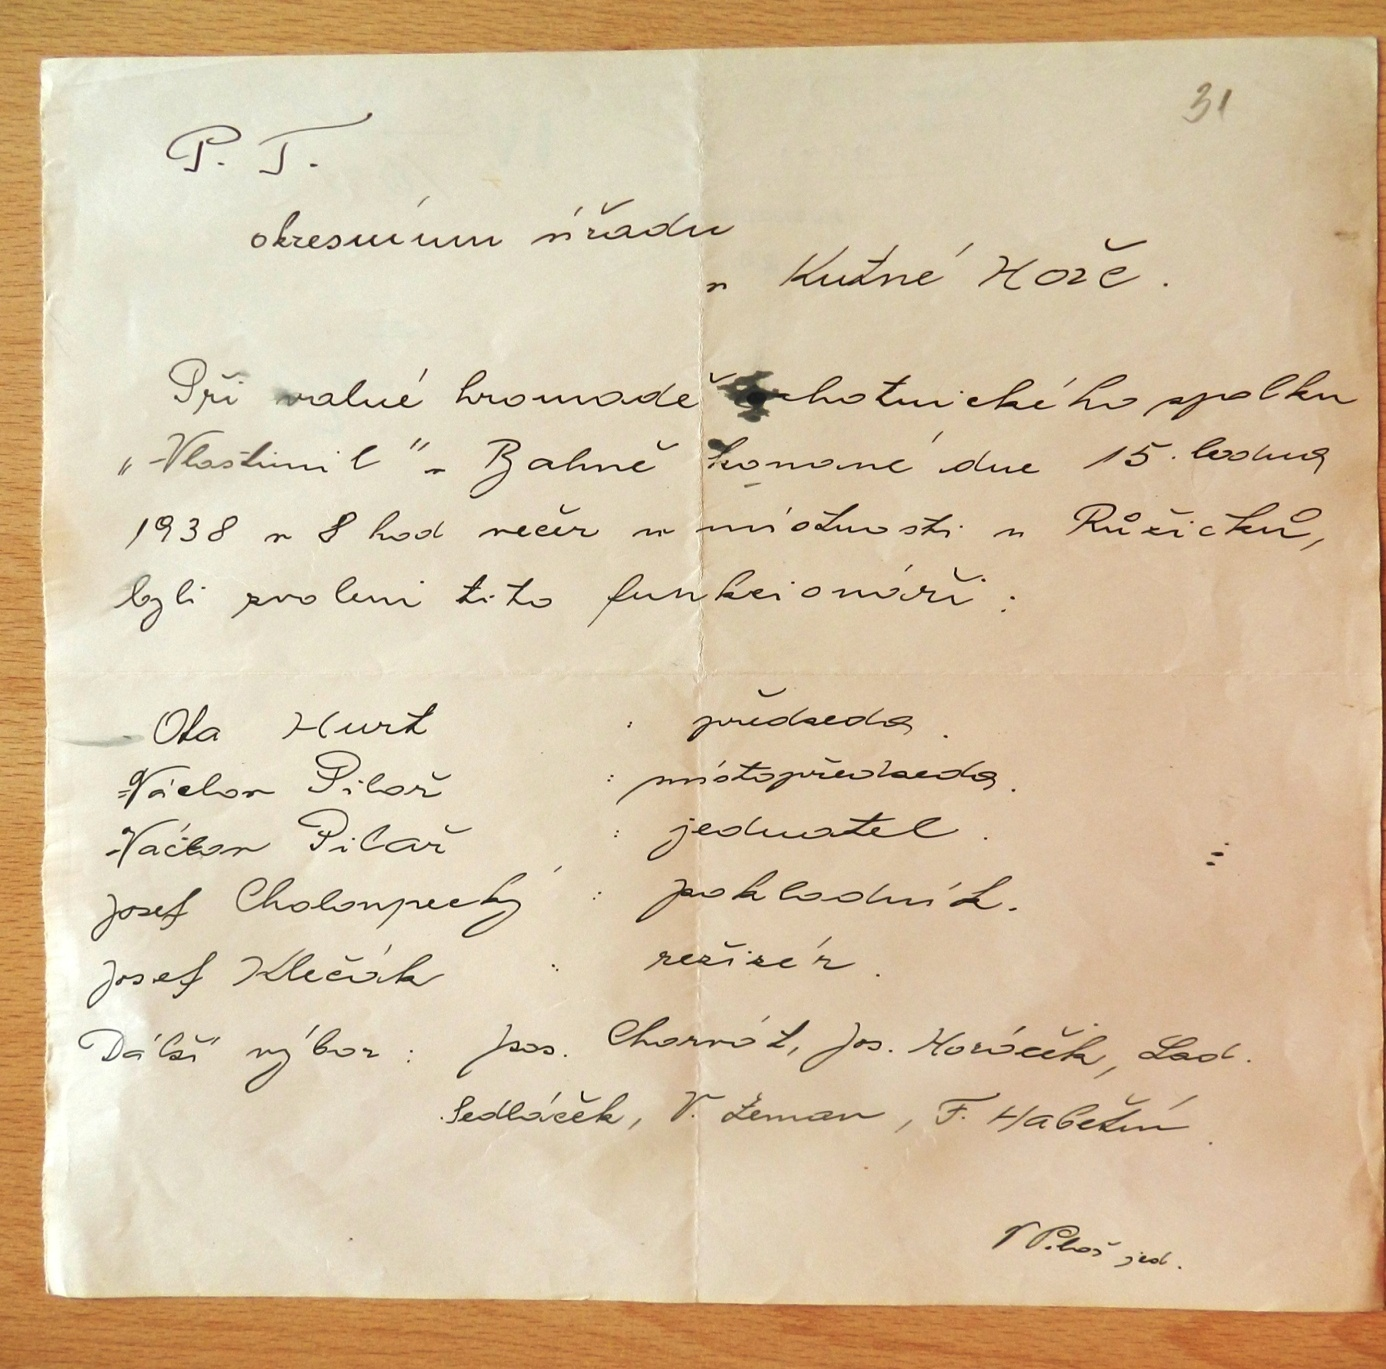 31
P. T.
okresnímu úřadu
v Kutné Hoře.
Při valné hromadě ochotnického spolku
„Vlastimil" v Bahně konané dne 15. ledna
1938 v 8 hod večer v místnosti u Růžičků,
byli zvoleni tito funkcionáři:
Ota Hurt : předseda.
Václav Pilař : místopředseda.
Václav Pilař : jednatel.
Josef Choloupecký : pokladník.
Josef Klečák : režisér.
Dálší výbor: Jos. Charvát, Jos. Horáček, Lad.
Sedláček, V. Zeman, F. Habětín.
V Pilař jed.